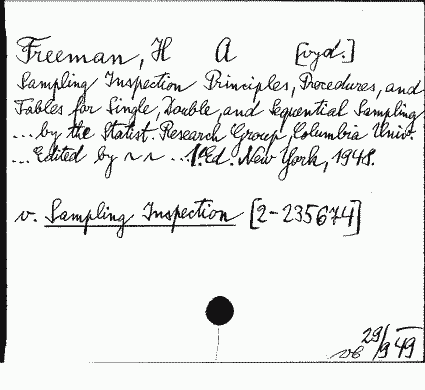 Freeman, H A [vyd.]
Sampling Inspection Principles, Procedures, and
Tables for Single, Double, and Sequential Sampling
... by the Statist. Research Group, Columbia Univ.
... Edited by ~ ~ ... 1.Ed. New York, 1948.
v. Sampling Inspection [2-235674]
29/9 49